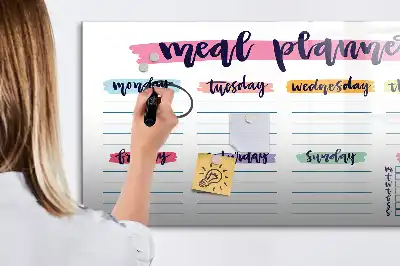 meal planne
monday tuesday wednesday th
saturday sunday